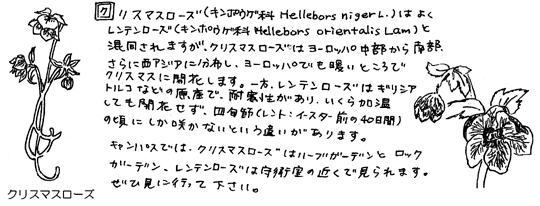 クリスマスローズ(キンポウゲ科 Hellebors niger L.)はよく
レンテンローズ(キンポウゲ科 Hellebors orientalis Lam)と
混同されますが、クリスマスローズはヨーロッパ中部から南部、
さらに西アジアに分布し、ヨーロッパでも暖いところで
クリスマスに開花します。一方、レンテンローズはギリシア
トルコなどの原産で、耐寒性があり、いくら加温
しても開花せず、四旬節(レント:イースター前の40日間)
の頃にしか咲かないという違いがあります。
キャンパスでは、クリスマスローズはハーブガーデンと ロック
ガーデン、レンテンローズは守衛室の近くで見られます。
ぜひ見に行って下さい。
クリスマスローズ